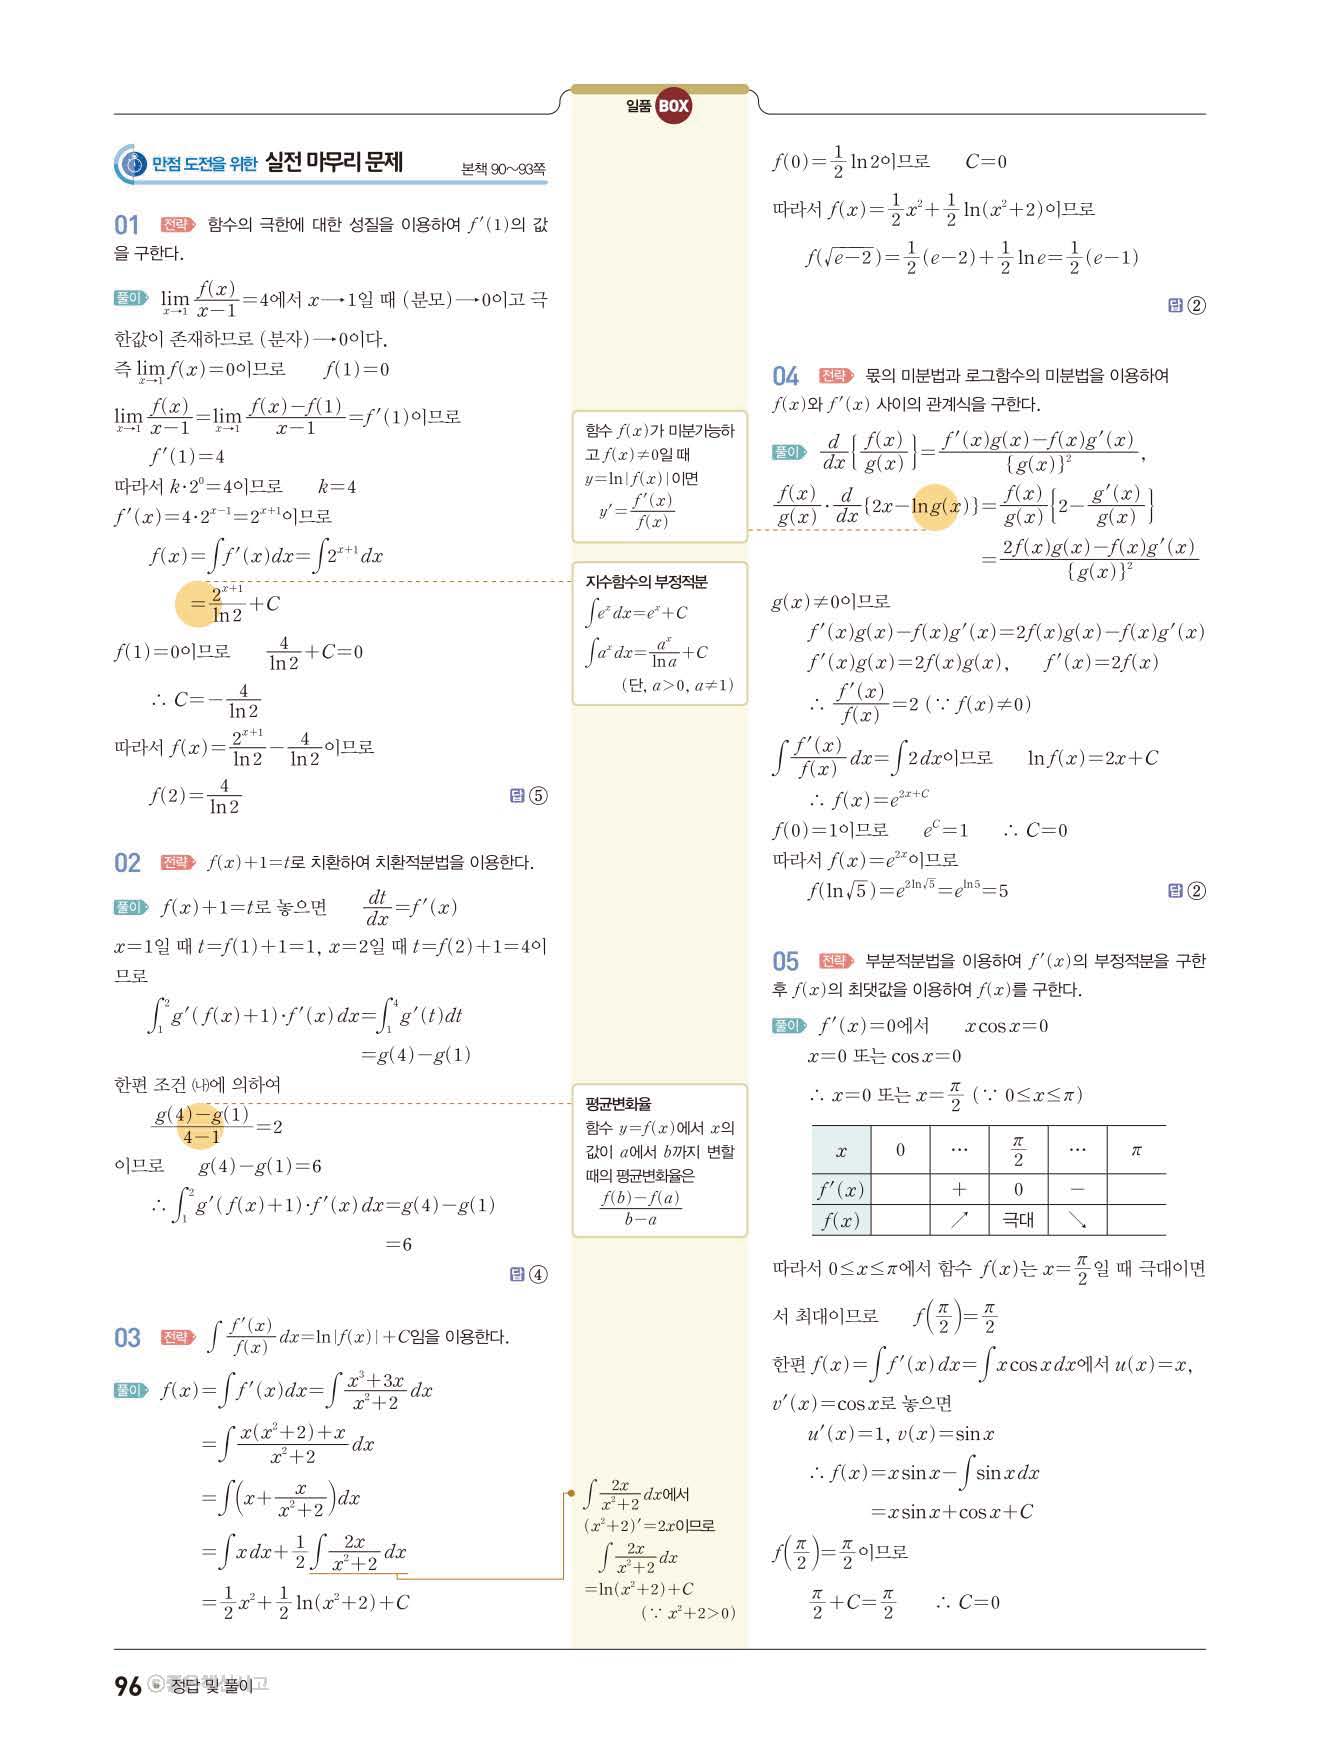 일품 BOX
만점 도전을 위한 실전 마무리 문제 본책 90~93쪽
01 전략 함수의 극한에 대한 성질을 이용하여 f′(1)의 값
을 구한다.
풀이 lim_{x→1} f(x)/(x−1)=4에서 x→1일 때 (분모)→0이고 극
한값이 존재하므로 (분자)→0이다.
즉 lim_{x→1} f(x)=0이므로 f(1)=0
lim_{x→1} f(x)/(x−1)=lim_{x→1} {f(x)−f(1)}/(x−1)=f′(1)이므로
f′(1)=4
따라서 k·2^0=4이므로 k=4
f′(x)=4·2^{x−1}=2^{x+1}이므로
f(x)=∫f′(x)dx=∫2^{x+1}dx
=2^{x+1}/ln2+C
f(1)=0이므로 4/ln2+C=0
∴ C=−4/ln2
따라서 f(x)=2^{x+1}/ln2−4/ln2이므로
f(2)=4/ln2 답 ⑤
02 전략 f(x)+1=t로 치환하여 치환적분법을 이용한다.
풀이 f(x)+1=t로 놓으면 dt/dx=f′(x)
x=1일 때 t=f(1)+1=1, x=2일 때 t=f(2)+1=4이
므로
∫_1^2 g′(f(x)+1)·f′(x)dx=∫_1^4 g′(t)dt
=g(4)−g(1)
한편 조건 ㈏에 의하여
{g(4)−g(1)}/(4−1)=2
이므로 g(4)−g(1)=6
∴ ∫_1^2 g′(f(x)+1)·f′(x)dx=g(4)−g(1)
=6
답 ④
03 전략 ∫f′(x)/f(x) dx=ln|f(x)|+C임을 이용한다.
풀이 f(x)=∫f′(x)dx=∫(x^3+3x)/(x^2+2) dx
=∫{x(x^2+2)+x}/(x^2+2) dx
=∫(x+x/(x^2+2))dx
=∫xdx+1/2∫2x/(x^2+2) dx
=1/2 x^2+1/2 ln(x^2+2)+C
함수 f(x)가 미분가능하
고 f(x)≠0일 때
y=ln|f(x)|이면
y′=f′(x)/f(x)
지수함수의 부정적분
∫e^x dx=e^x+C
∫a^x dx=a^x/lna+C
(단, a>0, a≠1)
평균변화율
함수 y=f(x)에서 x의
값이 a에서 b까지 변할
때의 평균변화율은
{f(b)−f(a)}/(b−a)
∫2x/(x^2+2) dx에서
(x^2+2)′=2x이므로
∫2x/(x^2+2) dx
=ln(x^2+2)+C
(∵ x^2+2>0)
f(0)=1/2 ln2이므로 C=0
따라서 f(x)=1/2 x^2+1/2 ln(x^2+2)이므로
f(√(e−2))=1/2(e−2)+1/2 lne=1/2(e−1)
답 ②
04 전략 몫의 미분법과 로그함수의 미분법을 이용하여
f(x)와 f′(x) 사이의 관계식을 구한다.
풀이 d/dx{f(x)/g(x)}={f′(x)g(x)−f(x)g′(x)}/{g(x)}^2,
f(x)/g(x)·d/dx{2x−lng(x)}=f(x)/g(x){2−g′(x)/g(x)}
={2f(x)g(x)−f(x)g′(x)}/{g(x)}^2
g(x)≠0이므로
f′(x)g(x)−f(x)g′(x)=2f(x)g(x)−f(x)g′(x)
f′(x)g(x)=2f(x)g(x), f′(x)=2f(x)
∴ f′(x)/f(x)=2 (∵ f(x)≠0)
∫f′(x)/f(x) dx=∫2dx이므로 lnf(x)=2x+C
∴ f(x)=e^{2x+C}
f(0)=1이므로 e^C=1 ∴ C=0
따라서 f(x)=e^{2x}이므로
f(ln√5)=e^{2ln√5}=e^{ln5}=5 답 ②
05 전략 부분적분법을 이용하여 f′(x)의 부정적분을 구한
후 f(x)의 최댓값을 이용하여 f(x)를 구한다.
풀이 f′(x)=0에서 xcosx=0
x=0 또는 cosx=0
∴ x=0 또는 x=π/2 (∵ 0≤x≤π)
x 0 ⋯ π/2 ⋯ π
f′(x) + 0 −
f(x) ↗ 극대 ↘
따라서 0≤x≤π에서 함수 f(x)는 x=π/2일 때 극대이면
서 최대이므로 f(π/2)=π/2
한편 f(x)=∫f′(x)dx=∫xcosxdx에서 u(x)=x,
v′(x)=cosx로 놓으면
u′(x)=1, v(x)=sinx
∴ f(x)=xsinx−∫sinxdx
=xsinx+cosx+C
f(π/2)=π/2이므로
π/2+C=π/2 ∴ C=0
96 정답 및 풀이